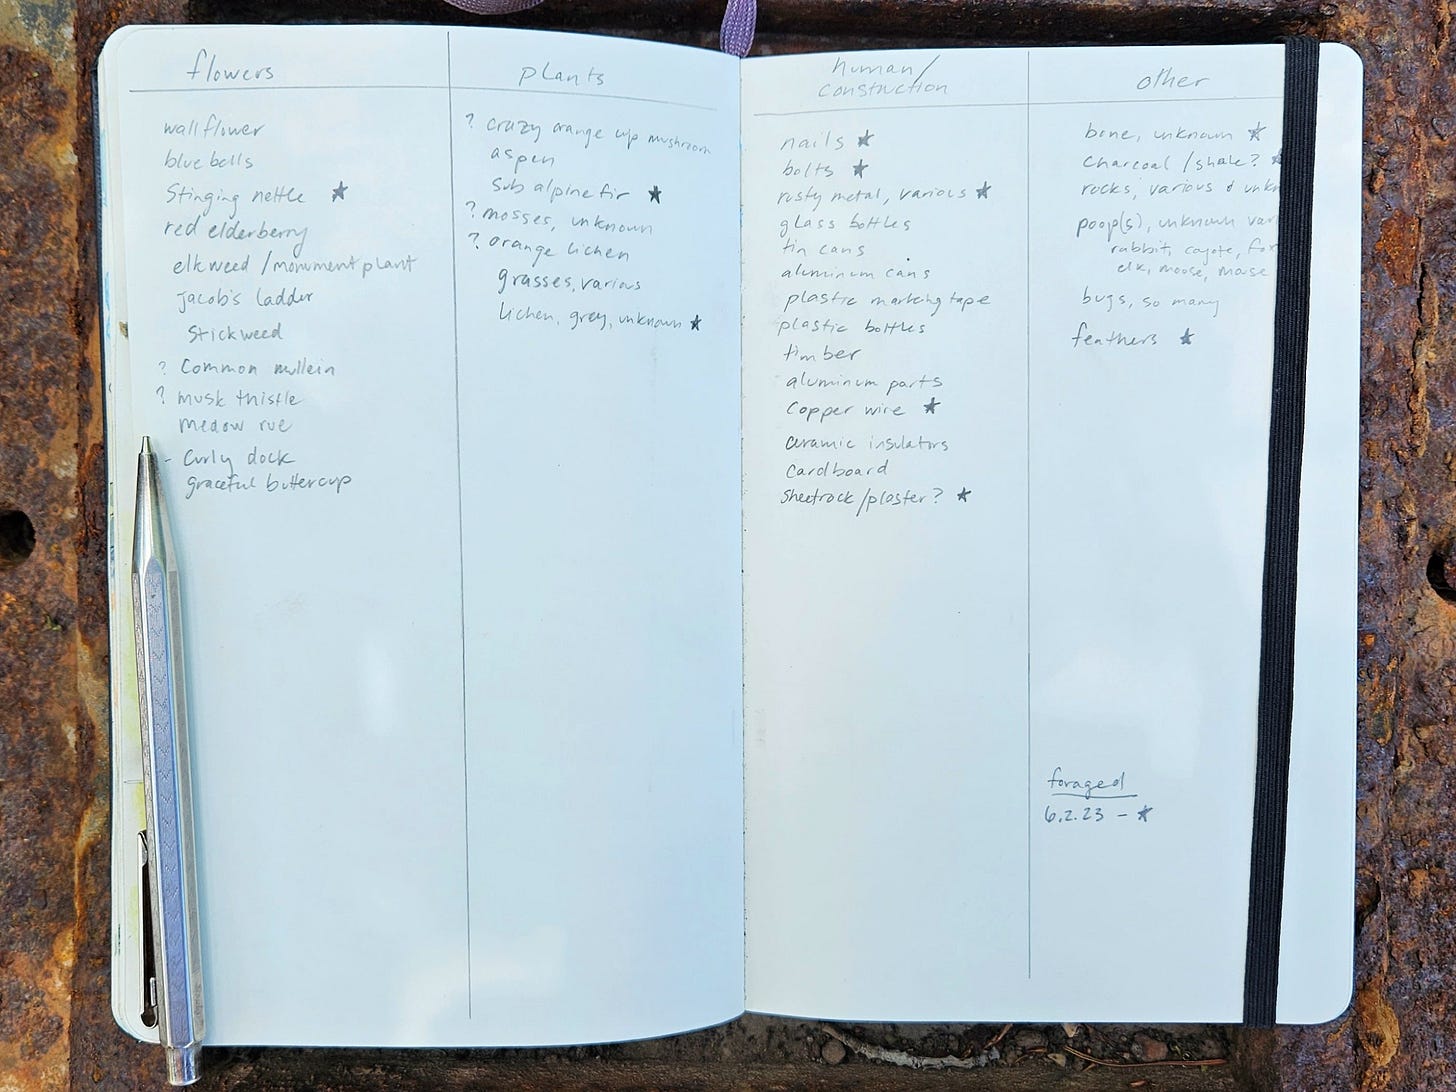 flowers
wallflower
bluebells
Stinging nettle ★
red elderberry
elkweed / monument plant
jacob's ladder
stickweed
? Common mullein
? musk thistle
medow rue
- curly dock
graceful buttercup
plants
? crazy orange cup mushroom
aspen
sub alpine fir ★
? mosses, unknown
? orange lichen
grasses, various
lichen, grey, unknown ★
human/
construction
nails ★
bolts ★
rusty metal, various ★
glass bottles
tin cans
aluminum cans
plastic marking tape
plastic bottles
timber
aluminum parts
copper wire ★
ceramic insulators
cardboard
sheetrock/plaster? ★
other
bone, unknown ★
charcoal / shale? ★
rocks, various & unkn
poop(s), unknown var
rabbit, coyote, fox
elk, moose, mouse
bugs, so many
feathers ★
foraged
6.2.23 - ★